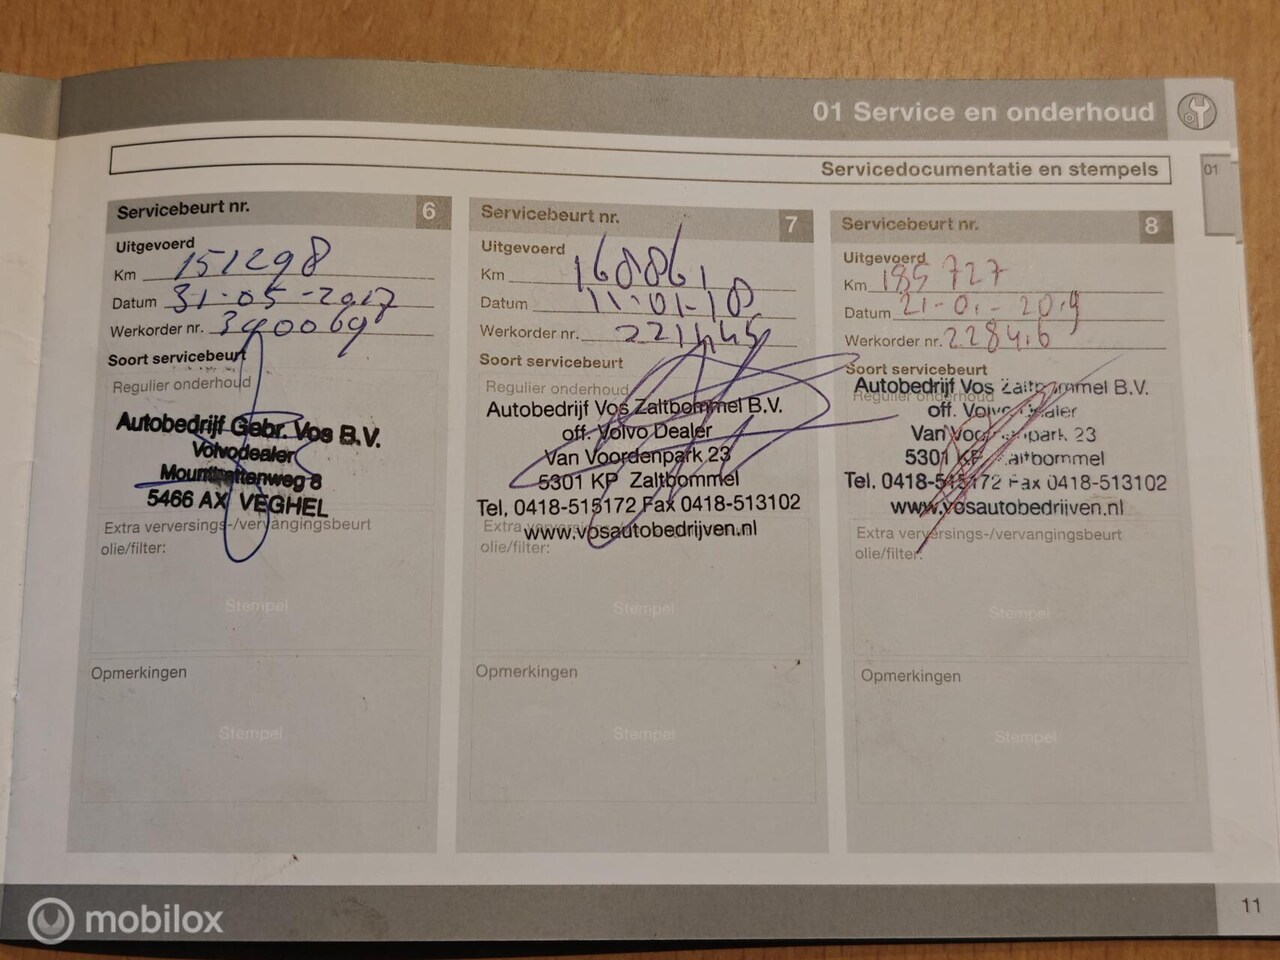 01 Service en onderhoud
Servicedocumentatie en stempels
01
Servicebeurt nr. 6
Uitgevoerd
Km 151298
Datum 31-05-2017
Werkorder nr. 390069
Soort servicebeurt
Regulier onderhoud
Autobedrijf Gebr. Vos B.V.
Volvodealer
8
5466 AX VEGHEL
Extra verversings-/vervangingsbeurt
olie/filter:
Stempel
Opmerkingen
Stempel
Servicebeurt nr. 7
Uitgevoerd
Km 168861
Datum 11-01-18
Werkorder nr. 221445
Soort servicebeurt
Regulier onderhoud
Autobedrijf Vos Zaltbommel B.V.
off. Volvo Dealer
Van Voordenpark 23
5301 KP Zaltbommel
Tel. 0418-515172 Fax 0418-513102
www.vosautobedrijven.nl
Extra
olie/filter:
Stempel
Opmerkingen
Stempel
Servicebeurt nr. 8
Uitgevoerd
Km 185727
Datum 21-01-2019
Werkorder nr. 228416
Soort servicebeurt
Regulier onderhoud
Autobedrijf Vos Zaltbommel B.V.
off. Volvo Dealer
Van Voordenpark 23
5301 KP Zaltbommel
Tel. 0418-515172 Fax 0418-513102
www.vosautobedrijven.nl
Extra verversings-/vervangingsbeurt
olie/filter:
Stempel
Opmerkingen
Stempel
11
mobilox